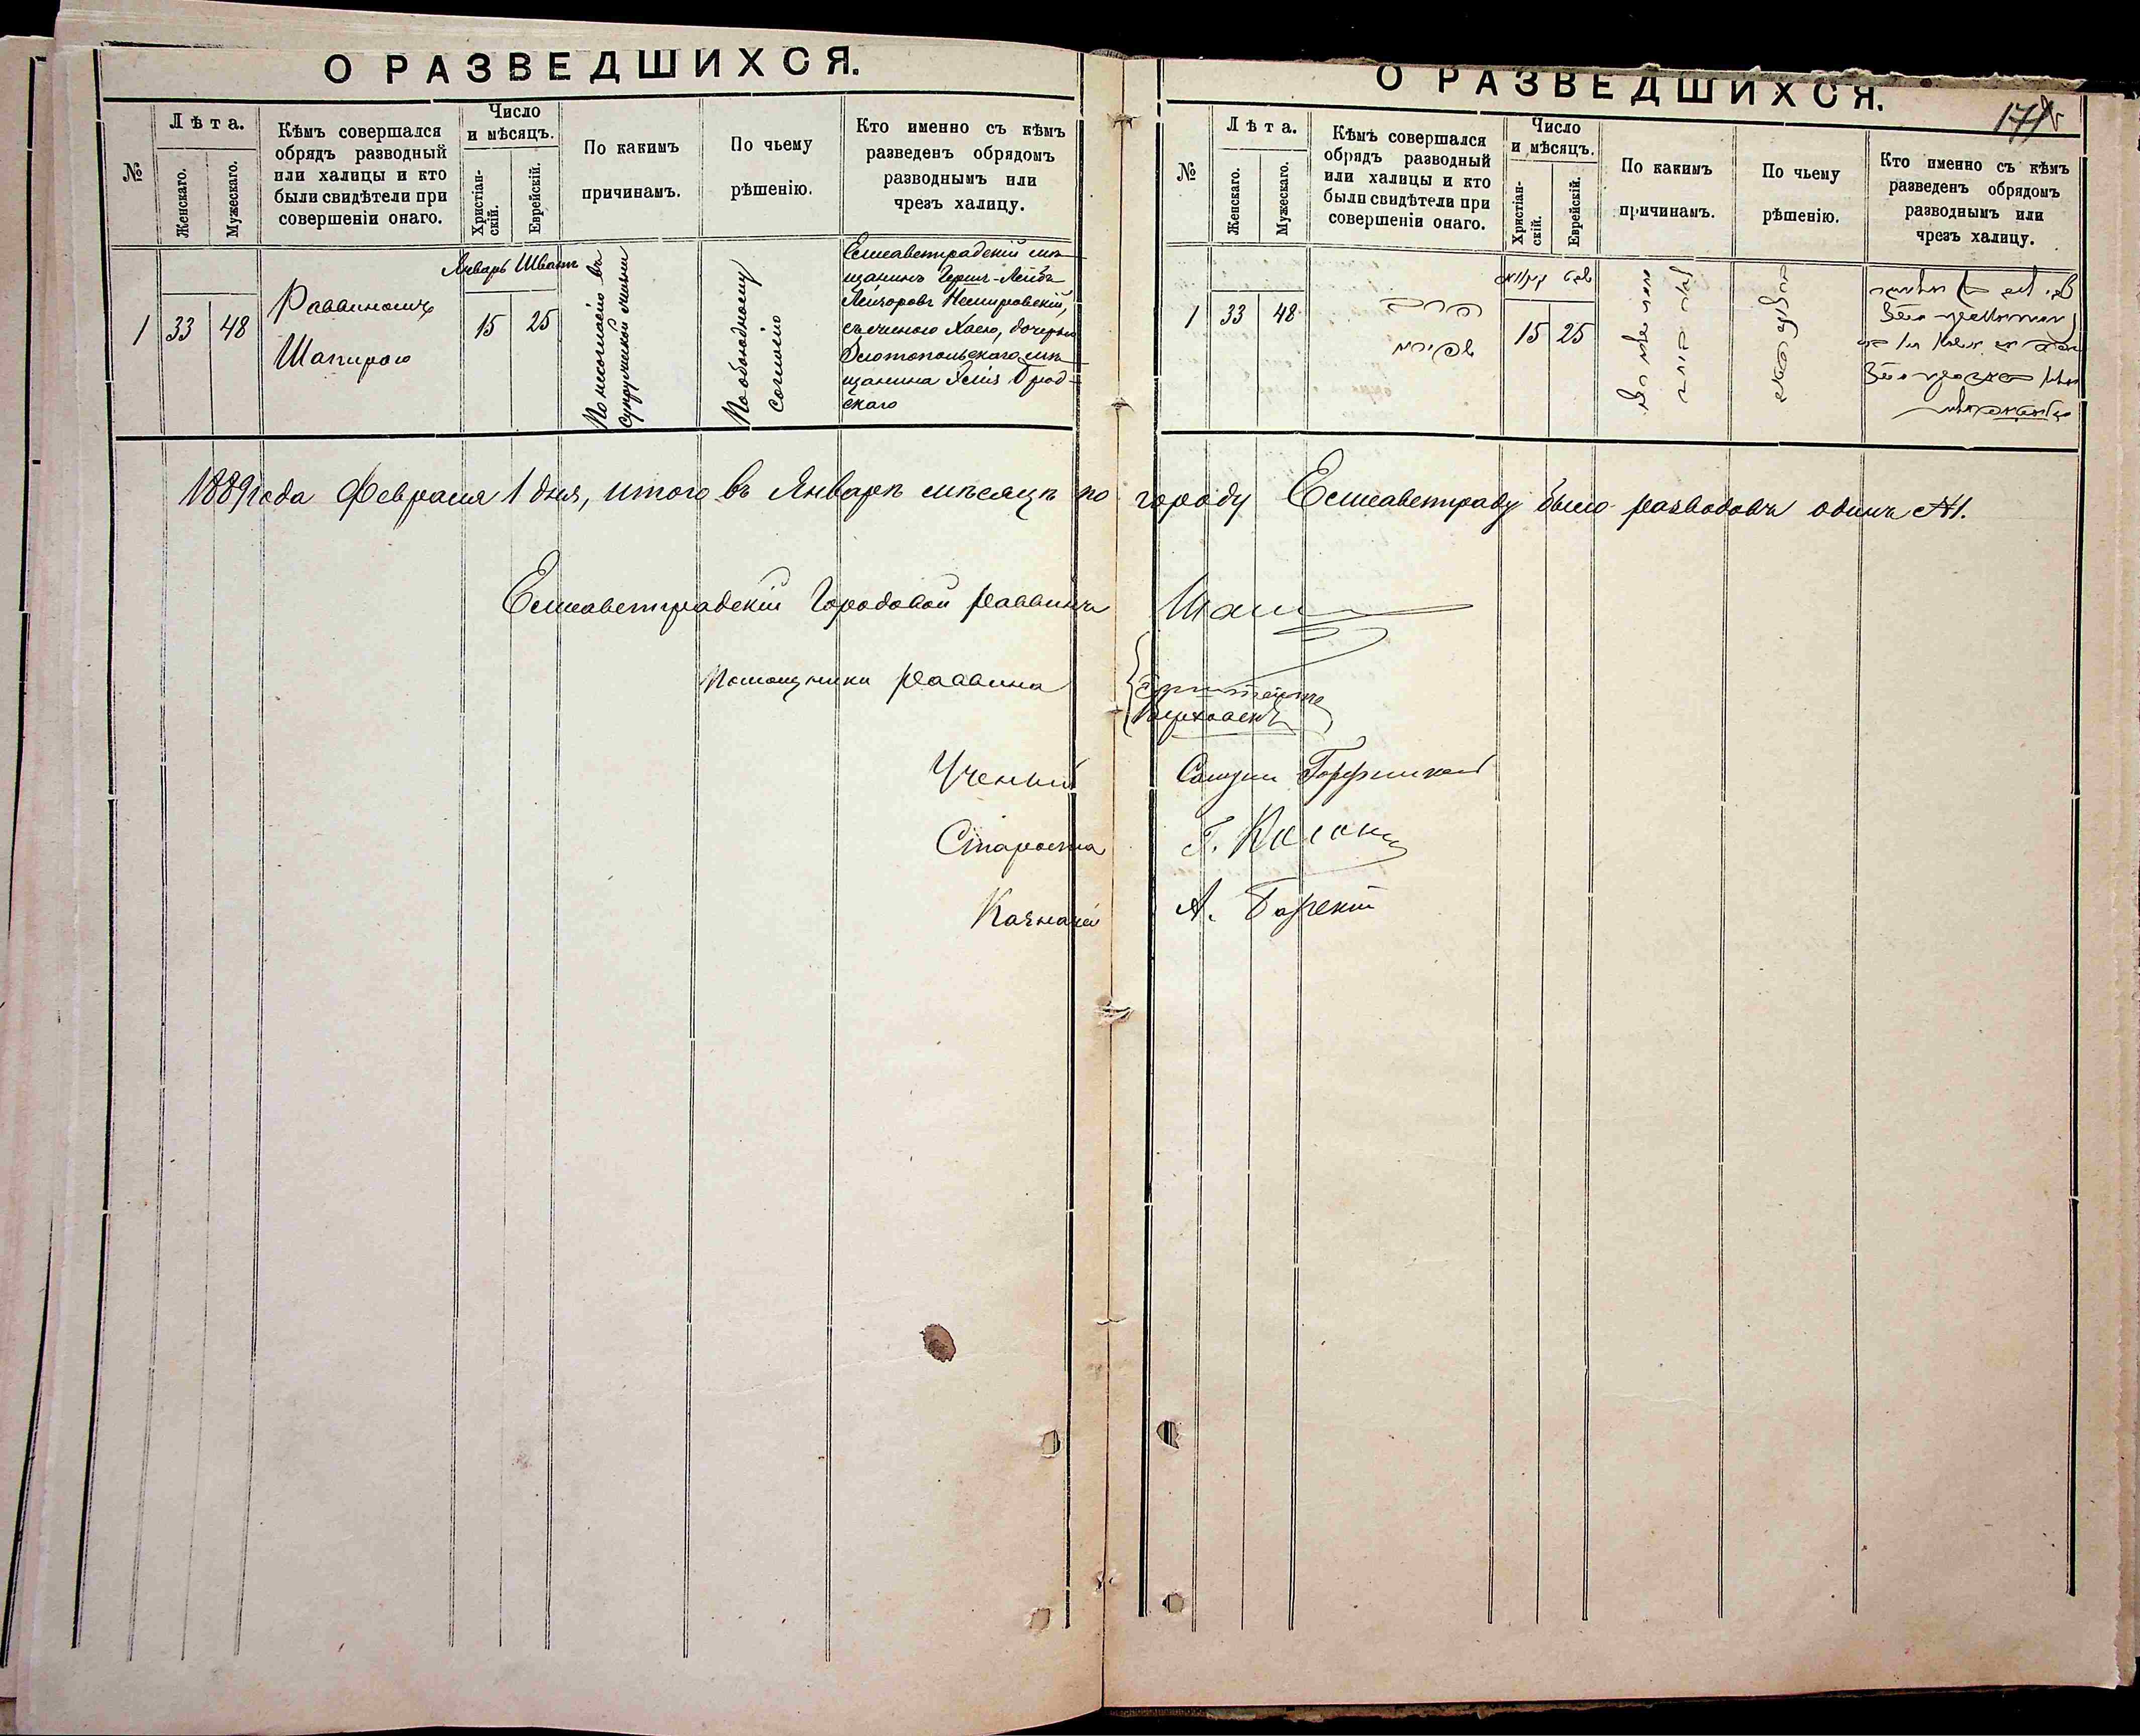 О РАЗВЕДШИХСЯ.
№
Лѣта.
Женскаго.
Мужескаго.
Кѣмъ совершался
обрядъ разводный
или халицы и кто
были свидѣтели при
совершеніи онаго.
Число
и мѣсяцъ.
Христіан-
скій.
Еврейскій.
По какимъ
причинамъ.
По чьему
рѣшенію.
Кто именно съ кѣмъ
разведенъ обрядомъ
разводнымъ или
чрезъ халицу.
1
33
48
Раввиномъ
Шапирою
Январь Шватъ
15
25
По несогласію въ
супружеской жизни
По обоюдному
согласію
Елисаветградскій мѣ-
щанинъ Герш-Лейбъ
Лейзоровъ Немировскій,
съ женою Хаею, дочерью
Златопольскаго мѣ-
щанина Брод-
скаго
О РАЗВЕДШИХСЯ.
171
№
Лѣта.
Женскаго.
Мужескаго.
Кѣмъ совершался
обрядъ разводный
или халицы и кто
были свидѣтели при
совершеніи онаго.
Число
и мѣсяцъ.
Христіан-
скій.
Еврейскій.
По какимъ
причинамъ.
По чьему
рѣшенію.
Кто именно съ кѣмъ
разведенъ обрядомъ
разводнымъ или
чрезъ халицу.
1
33
48
הרב
שפירא
יאנואר שבט
15
25
1889 года Февраля 1 дня, итого въ Январѣ мѣсяцѣ по городу Елисаветграду было разводовъ одинъ №1.
Елисаветградскій Городовой раввинъ
Помощники раввина
Ученый
Староста
Казначей